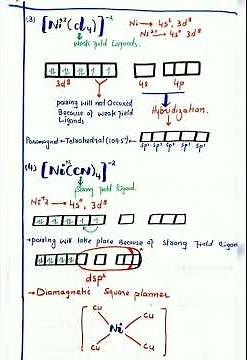 (3) [Ni+2(Cl4)]-2
Ni → 4s2, 3d8
Ni2+ → 4s0 3d8
weak field Ligands.
3d8 4s 4p
pairing will not Occured
Because of weak field
Ligands
Hybridization.
Paramagnet - Tetrahedral (109.5°)
sp3 sp3 sp3 sp3
(4) [Ni+2(CN)4]-2
strong field ligand.
Ni+2 → 4s0, 3d8
→ pairing will take place Because of strong field ligan
dsp2
→ Diamagnetic Square planner
CN CN
Ni
CN CN